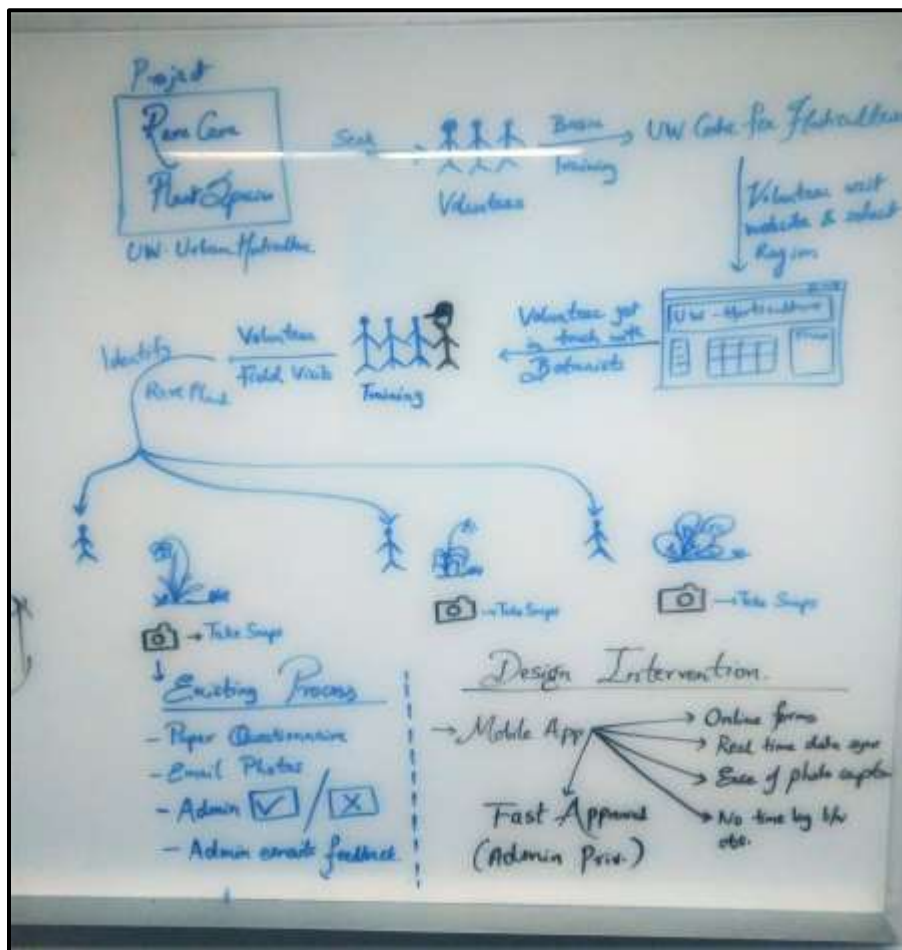 Project
Rare Care
Plant Species
UW Urban Horticulture
Seek
Volunteers
Basic
Training
UW Center for Horticulture
Volunteer visit
website & select
Region
UW-Horticulture
Volunteer get
in touch with
Botanists
Training
Volunteer
Field Visits
Identify
Rare Plant
→ Take Snaps
→ Take Snaps
→ Take Snaps
Existing Process
- Paper Questionnaire
- Email Photos
- Admin ☑ / ☒
- Admin emails feedback.
Design Intervention.
→ Mobile App
Online forms
Real time data sync
Ease of photo capture
No time lag b/w
obs.
Fast Approval
(Admin Priv.)